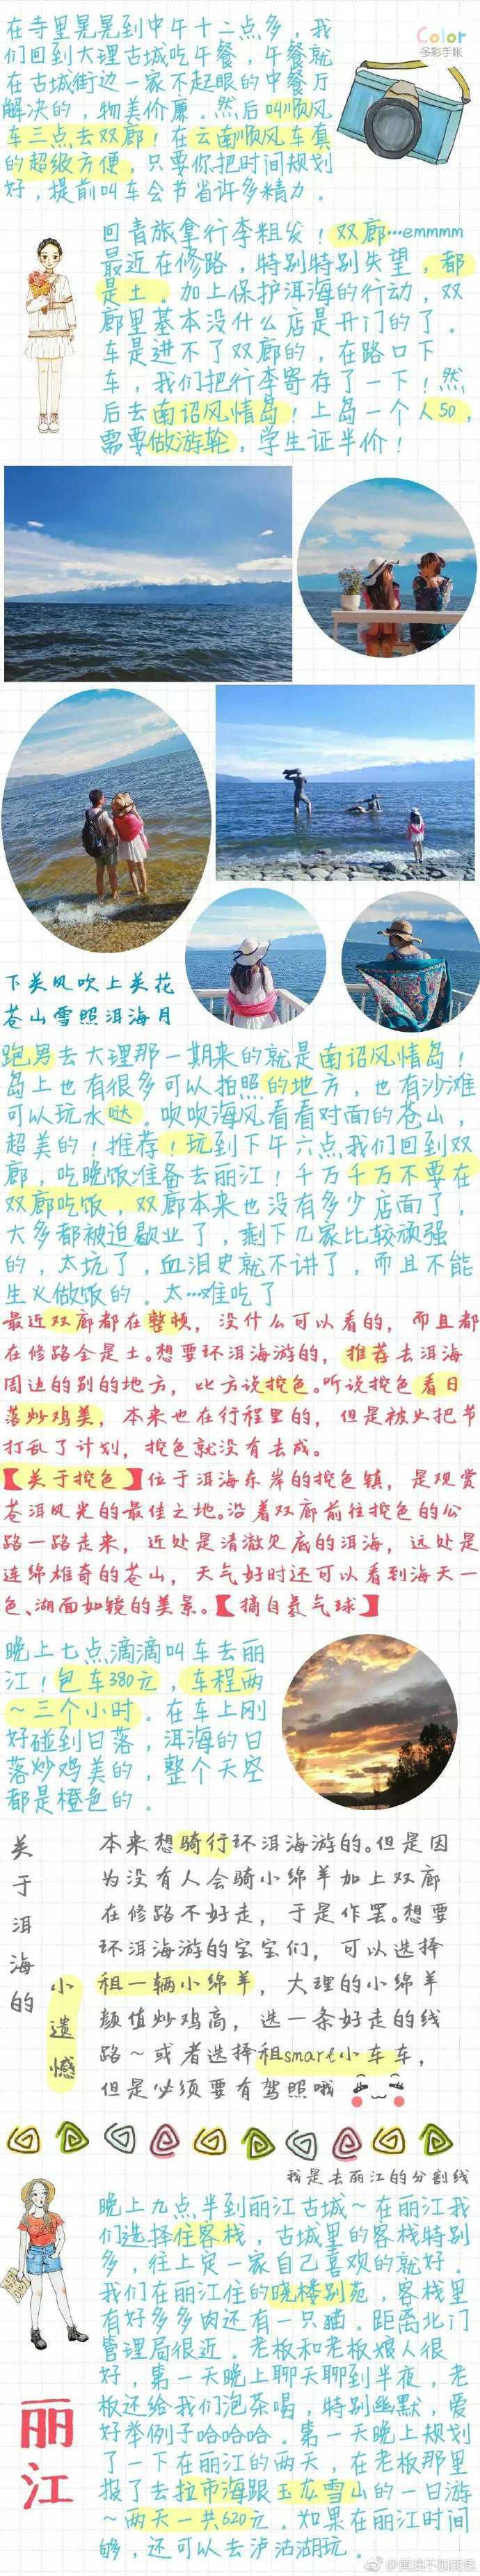 Color
多彩手帐
在寺里晃晃到中午十二点多，我
们回到大理古城吃午餐，午餐就
在古城街边一家不起眼的中餐厅
解决的，物美价廉。然后叫顺风
车三点去双廊！在云南顺风车真
的超级方便，只要你把时间规划
好，提前叫车会节省许多精力。
回青旅拿行李粗发！双廊…emmmm
最近在修路，特别特别失望，都
是土。加上保护洱海的行动，双
廊里基本没什么店是开门的了。
车是进不了双廊的，在路口下
车，我们把行李寄存了一下！然
后去南诏风情岛！上岛一个人50，
需要做游轮，学生证半价！
下关风吹上关花
苍山雪照洱海月
跑男去大理那一期来的就是南诏风情岛！
岛上也有很多可以拍照的地方，也有沙滩
可以玩水哒。吹吹海风看看对面的苍山，
超美的！推荐！玩到下午六点我们回到双
廊，吃晚饭准备去丽江！千万千万不要在
双廊吃饭，双廊本来也没有多少店面了，
大多都被迫歇业了，剩下几家比较顽强
的，太坑了，血泪史就不讲了，而且不能
生火做饭的。太…难吃了
最近双廊都在整顿，没什么可以看的，而且都
在修路全是土。想要环洱海游的，推荐去洱海
周边的别的地方，比方说挖色。听说挖色看日
落炒鸡美，本来也在行程里的，但是被火把节
打乱了计划，挖色就没有去成。
【关于挖色】位于洱海东岸的挖色镇，是观赏
苍洱风光的最佳之地。沿着双廊前往挖色的公
路一路走来，近处是清澈见底的洱海，远处是
连绵雄奇的苍山，天气好时还可以看到海天一
色、湖面如镜的美景。【摘自氢气球】
晚上七点滴滴叫车去丽
江！包车380元，车程两
~三个小时。在车上刚
好碰到日落，洱海的日
落炒鸡美的，整个天空
都是橙色的。
关于洱海的
小遗憾
本来想骑行环洱海游的。但是因
为没有人会骑小绵羊加上双廊
在修路不好走，于是作罢。想要
环洱海游的宝宝们，可以选择
租一辆小绵羊，大理的小绵羊
颜值炒鸡高，选一条好走的线
路~或者选择租smart小车车，
但是必须要有驾照哦
我是去丽江的分割线
晚上九点半到丽江古城~在丽江我
们选择住客栈，古城里的客栈特别
多，往上定一家自己喜欢的就好。
我们在丽江住的晓楼别苑，客栈里
有好多多肉还有一只猫。距离北门
管理局很近。老板和老板娘人很
好，第一天晚上聊天聊到半夜，老
板还给我们泡茶喝，特别幽默，爱
好举例子哈哈哈。第一天晚上规划
了一下在丽江的两天，在老板那里
报了去拉市海跟玉龙雪山的一日游
~两天一共620元。如果在丽江时间
够，还可以去泸沽湖玩。
丽江
@黄油不腻面包